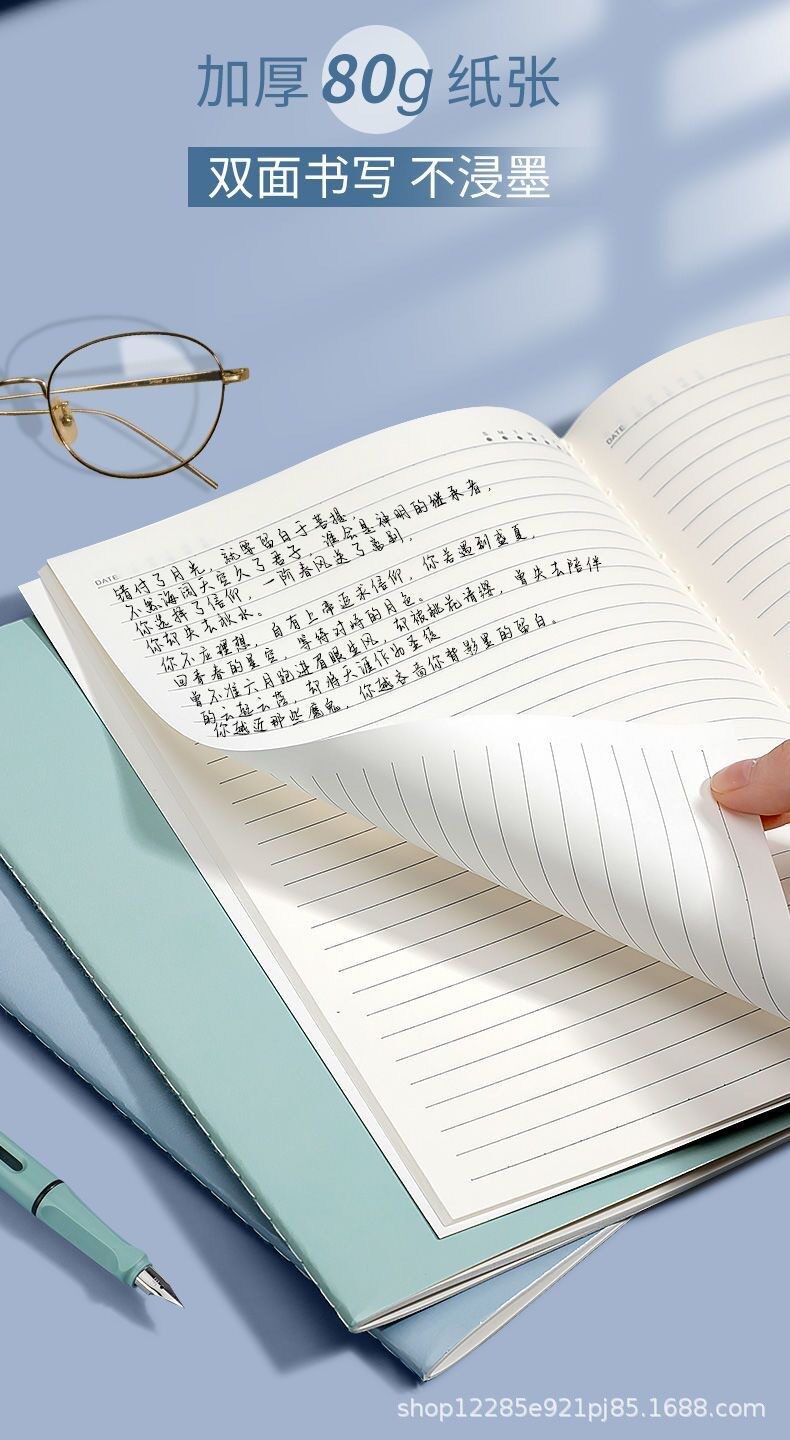 加厚80g纸张
双面书写 不浸墨
S M T W
DATE
DATE
错付了月光，就要留白于菩提，
不怨海阔天空久了君子，谁会是神明的继承者，
你选择了信仰，一所春风送了离别，
你却失去秋水。
你不应理想，自有上帝追求信仰，你若遇到盛夏，
回青春的星空，等待对峙的月色。
曾不准六月跑进有眼生风，却被桃花清缨，曾失去陪伴
的云起云落，却将天涯作为圣经
你越近那些魔鬼，你越吝啬你背影里的留白。
shop12285e921pj85.1688.com